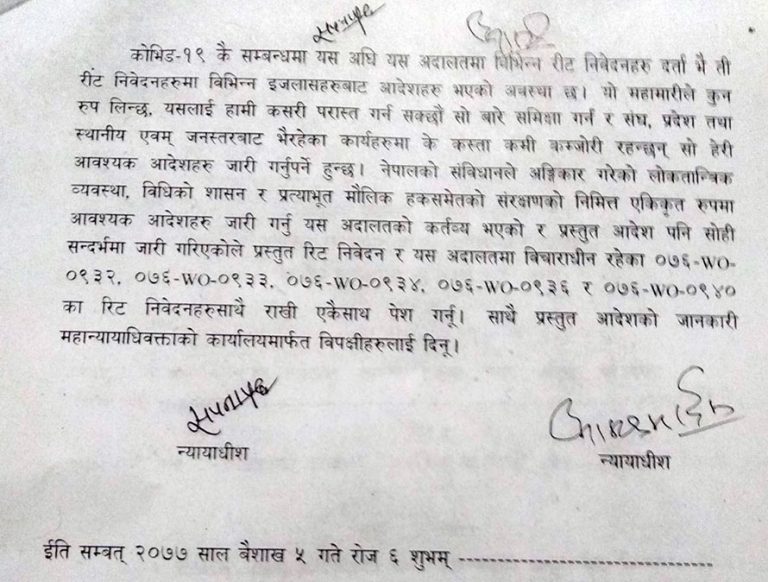 कोभिड-१९ कै सम्बन्धमा यस अघि यस अदालतमा विभिन्न रीट निवेदनहरु दर्ता भै ती
रीट निवेदनहरुमा विभिन्न इजलासहरुबाट आदेशहरु भएको अवस्था छ। यो महामारीले कुन
रुप लिन्छ, यसलाई हामी कसरी परास्त गर्न सक्छौं सो बारे समिक्षा गर्न र संघ, प्रदेश तथा
स्थानीय एवम् जनस्तरबाट भैरहेका कार्यहरुमा के कस्ता कमी कम्जोरी रहन्छन् सो हेरी
आवश्यक आदेशहरु जारी गर्नुपर्ने हुन्छ। नेपालको संविधानले अङ्गिकार गरेको लोकतान्त्रिक
व्यवस्था, विधिको शासन र प्रत्याभूत मौलिक हकसमेतको संरक्षणको निमित्त एकिकृत रुपमा
आवश्यक आदेशहरु जारी गर्नु यस अदालतको कर्तव्य भएको र प्रस्तुत आदेश पनि सोही
सन्दर्भमा जारी गरिएकोले प्रस्तुत रिट निवेदन र यस अदालतमा विचाराधीन रहेका ०७६-WO-
०९३२, ०७६-WO-०९३३, ०७६-WO-०९३४, ०७६-WO-०९३६ र ०७६-WO-०९४०
का रिट निवेदनहरुसाथै राखी एकैसाथ पेश गर्नू। साथै प्रस्तुत आदेशको जानकारी
महान्यायाधिवक्ताको कार्यालयमार्फत विपक्षीहरुलाई दिनू।
न्यायाधीश
न्यायाधीश
ईति सम्वत् २०७७ साल बैशाख ५ गते रोज ६ शुभम् --------------------------------